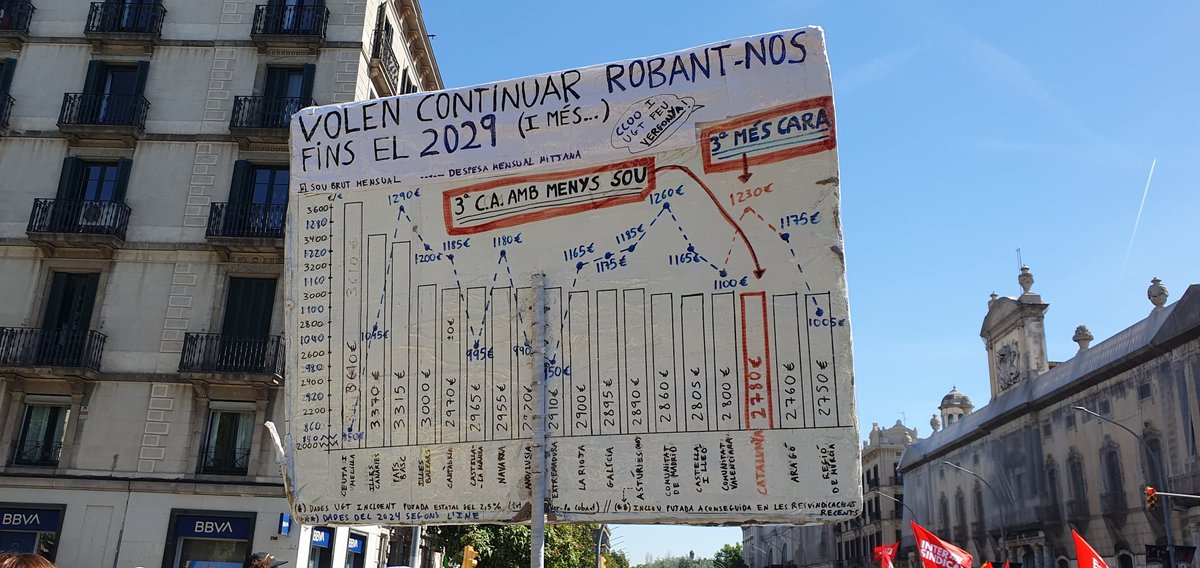 VOLEN CONTINUAR ROBANT-NOS
FINS EL 2029 (I MÉS...)
CCOO I
UGT FEU
VERGONYA!
3ª MÉS CARA
SOU BRUT MENSUAL ..... DESPESA MENSUAL MITJANA
3ª C.A. AMB MENYS SOU
€/c
3600
1280
3400
1220
3200
1160
3000
1100
2800
1040
2600
980
2400
920
2200
860
2000
1290€
1045€
1200€
1185€
995€
1180€
1165€
1175€
1185€
1260€
1165€
1100€
1230€
1175€
1005€
3610€
3370€
3315€
3000€
2970€
2955€
2955€
2910€
2900€
2895€
2890€
2860€
2805€
2800€
2780€
2760€
2750€
CEUTA I
MELILLA
ILLES
CANÀRIES
PAÍS
BASC
ILLES
BALEARS
CANTÀBRIA
CASTELLA-
LA MANXA
NAVARRA
ANDALUSIA
EXTREMADURA
LA RIOJA
GALÍCIA
ASTÚRIES
COMUNITAT
DE MADRID
CASTELLA
I LLEÓ
COMUNITAT
VALENCIANA
CATALUNYA
ARAGÓ
REGIÓ
DE MÚRCIA
(*) DADES UGT INCLOENT PUJADA ESTATAL DEL 2,5% // (**) INCLOU PUJADA ACONSEGUIDA EN LES REIVINDICACIONS
RECENTS
(**) DADES DEL 2024 SEGONS L'INE
BBVA
BBVA
BBVA
BBVA
INTER
SINDICA